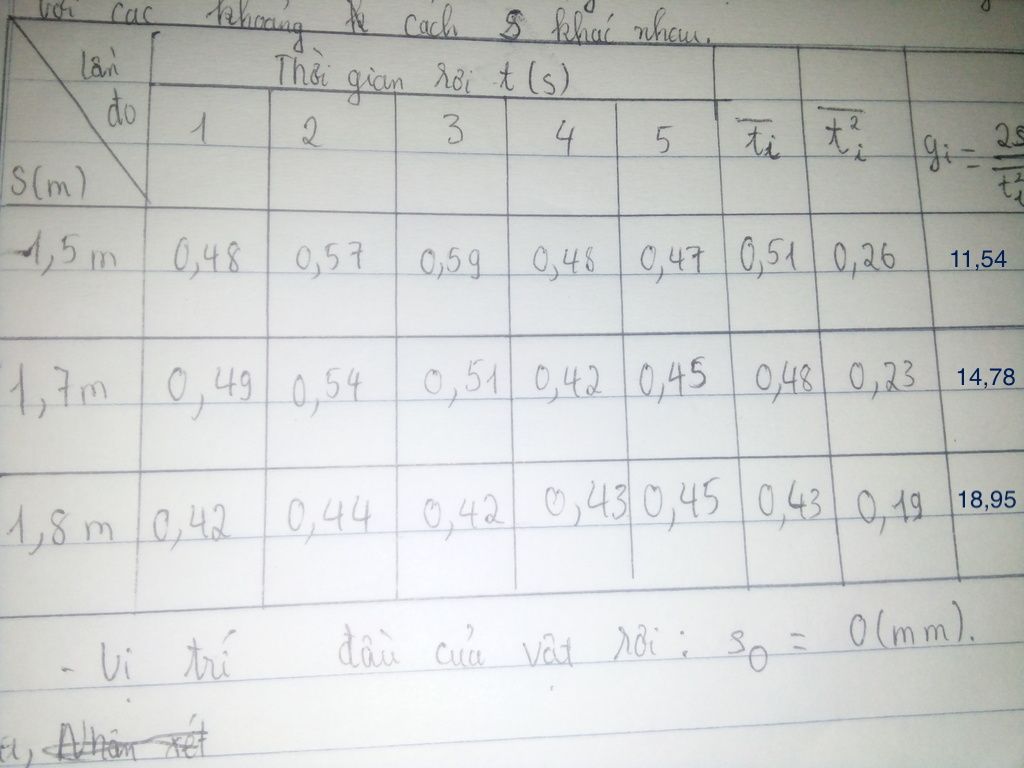 với các khoảng cách S khác nhau.
lần đo
S(m)
Thời gian rơi t (s)
1 2 3 4 5 t̅ᵢ t̅ᵢ² gᵢ = 2s/t̅ᵢ²
1,5 m 0,48 0,57 0,59 0,48 0,47 0,51 0,26 11,54
1,7m 0,49 0,54 0,51 0,42 0,45 0,48 0,23 14,78
1,8 m 0,42 0,44 0,42 0,43 0,45 0,43 0,19 18,95
- Vị trí đầu của vật rơi : s₀ = 0(mm).
Nhận xét